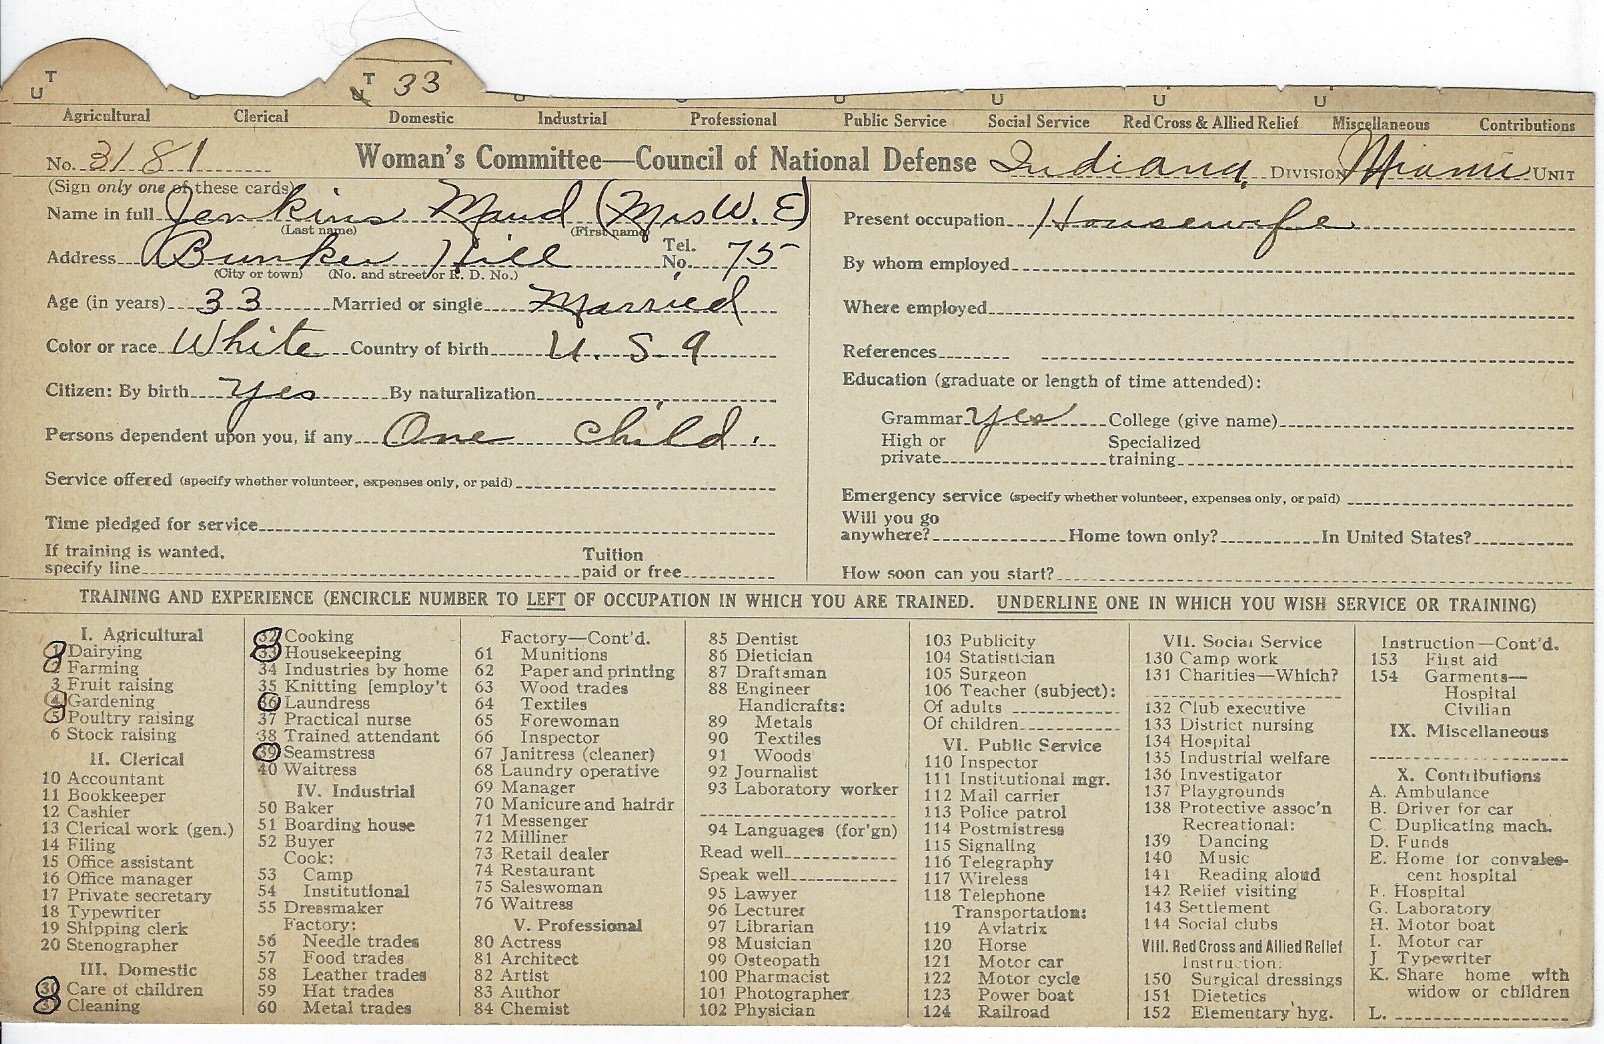 T
U
T 33
U
U
U
U
U
U
Agricultural Clerical Domestic Industrial Professional Public Service Social Service Red Cross & Allied Relief Miscellaneous Contributions
No. 3181 Woman's Committee—Council of National Defense Indiana, DIVISION Miami UNIT
(Sign only one of these cards)
Name in full Jenkins Maud (Mrs W. E)
(Last name) (First name)
Address Bunker Hill Tel. No. 75
(City or town) (No. and street or R. D. No.)
Age (in years) 33 Married or single Married
Color or race White Country of birth U. S. A
Citizen: By birth yes By naturalization
Persons dependent upon you, if any One child.
Service offered (specify whether volunteer, expenses only, or paid)
Time pledged for service
If training is wanted, specify line Tuition paid or free
Present occupation Housewife
By whom employed
Where employed
References
Education (graduate or length of time attended):
Grammar yes College (give name)
High or private Specialized training
Emergency service (specify whether volunteer, expenses only, or paid)
Will you go anywhere? Home town only? In United States?
How soon can you start?
TRAINING AND EXPERIENCE (ENCIRCLE NUMBER TO LEFT OF OCCUPATION IN WHICH YOU ARE TRAINED. UNDERLINE ONE IN WHICH YOU WISH SERVICE OR TRAINING)
I. Agricultural
1 Dairying
2 Farming
3 Fruit raising
4 Gardening
5 Poultry raising
6 Stock raising
II. Clerical
10 Accountant
11 Bookkeeper
12 Cashier
13 Clerical work (gen.)
14 Filing
15 Office assistant
16 Office manager
17 Private secretary
18 Typewriter
19 Shipping clerk
20 Stenographer
III. Domestic
30 Care of children
31 Cleaning
32 Cooking
33 Housekeeping
34 Industries by home
35 Knitting [employ't
36 Laundress
37 Practical nurse
38 Trained attendant
39 Seamstress
40 Waitress
IV. Industrial
50 Baker
51 Boarding house
52 Buyer
Cook:
53 Camp
54 Institutional
55 Dressmaker
Factory:
56 Needle trades
57 Food trades
58 Leather trades
59 Hat trades
60 Metal trades
Factory—Cont'd.
61 Munitions
62 Paper and printing
63 Wood trades
64 Textiles
65 Forewoman
66 Inspector
67 Janitress (cleaner)
68 Laundry operative
69 Manager
70 Manicure and hairdr
71 Messenger
72 Milliner
73 Retail dealer
74 Restaurant
75 Saleswoman
76 Waitress
V. Professional
80 Actress
81 Architect
82 Artist
83 Author
84 Chemist
85 Dentist
86 Dietician
87 Draftsman
88 Engineer
Handicrafts:
89 Metals
90 Textiles
91 Woods
92 Journalist
93 Laboratory worker
94 Languages (for'gn)
Read well
Speak well
95 Lawyer
96 Lecturer
97 Librarian
98 Musician
99 Osteopath
100 Pharmacist
101 Photographer
102 Physician
103 Publicity
104 Statistician
105 Surgeon
106 Teacher (subject):
Of adults
Of children
VI. Public Service
110 Inspector
111 Institutional mgr.
112 Mail carrier
113 Police patrol
114 Postmistress
115 Signaling
116 Telegraphy
117 Wireless
118 Telephone
Transportation:
119 Aviatrix
120 Horse
121 Motor car
122 Motor cycle
123 Power boat
124 Railroad
VII. Social Service
130 Camp work
131 Charities—Which?
132 Club executive
133 District nursing
134 Hospital
135 Industrial welfare
136 Investigator
137 Playgrounds
138 Protective assoc'n
Recreational:
139 Dancing
140 Music
141 Reading aloud
142 Relief visiting
143 Settlement
144 Social clubs
VIII. Red Cross and Allied Relief
Instruction:
150 Surgical dressings
151 Dietetics
152 Elementary hyg.
Instruction—Cont'd.
153 First aid
154 Garments—
Hospital
Civilian
IX. Miscellaneous
X. Contributions
A. Ambulance
B. Driver for car
C. Duplicating mach.
D. Funds
E. Home for convales-
cent hospital
F. Hospital
G. Laboratory
H. Motor boat
I. Motor car
J Typewriter
K. Share home with
widow or children
L.